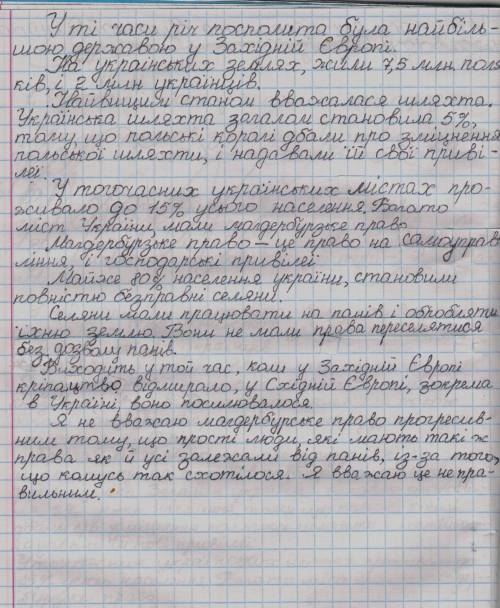 У ті часи річ посполита була найбіль-
шою державою у Західній Європі.
На українських землях, жили 7,5 млн. поля
ків, і 2 млн українців.
Найвищим станом вважалася шляхта.
Українська шляхта загалом становила 5%,
тому, що польські королі дбали про зміцнення
польської шляхти, і надавали їй свої приві-
леї.
У тогочасних українських містах про-
живало до 15% усього населення. Багато
міст України мали магдербурзке право.
Магдербурзке право – це право на самоуправ
ління, і господарські привілеї
Майже 80% населення україни, становили
повністю безправні селяни.
Селяни мали працювати на панів і обробляти
їхню землю. Вони не мали права переселятися
без дозволу панів.
Виходить у той час, коли у Західній Європі
кріпацтво відмирало, у Східній Європі, зокрема
в Україні, воно посилювалося.
Я не вважаю магдербурське право прогресив-
ним тому, що прості люди, які мають такі ж
права як й усі залежали від панів, із-за того,
що комусь так схотілося. Я вважаю це непра-
вильним.